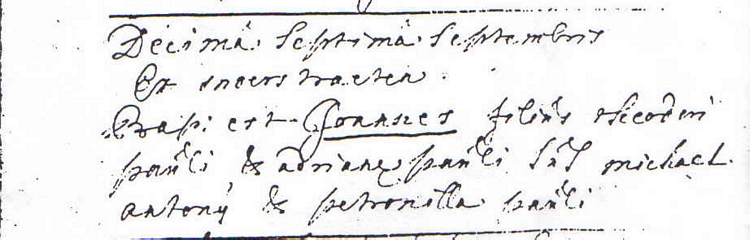 Decima Septima Septembris
Ex sneerstraeten
Bapt est Joannes filius theodori
pauli & adrianæ pauli Sus michael
antonÿ & petronilla pauli